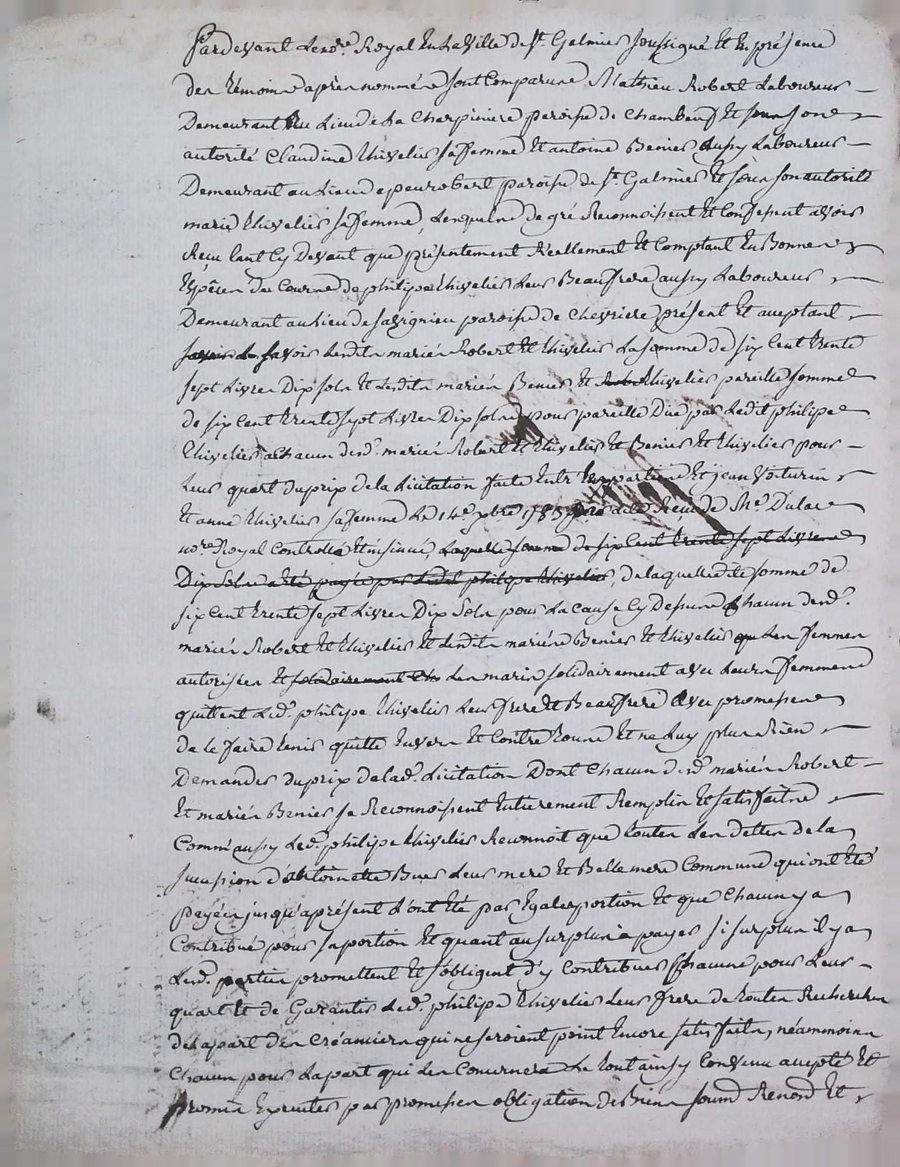 Pardevant Le nore. Royal En La Ville de St. Galmier soussigné Et En présence
des témoins après nommés sont Comparus Mathieu Robert Laboureur
Demeurant au Lieu de La Charpiniere paroisse de Chambeuf Et sous son
autorité Claudine thivelier sa femme Et antoine Benier aussy Laboureur
Demeurant au Lieu de peurobert paroisse de St. Galmier Et sous son autorité
marie thivelier sa femme, Lesquels de gré Reconnoissent Et Confessent avoir
Reçu tant Cy devant que présentement Réellement Et Comptant En Bonnes
Espèces du Cours de philipe thivelier Leur Beaufrere aussy Laboureur
Demeurant au Lieu de savignieu paroisse de Chevriere présent Et aceptant
savoir Lesdits mariés Robert Et thivelier La somme de six Cent trente
sept Livres Dix sols Et Lesdits mariés Benier Et thivelier pareille somme
de six Cent trente sept Livres Dix sols pour pareille Due par Ledit philipe
thivelier a Chacun desd. mariés Robert Et thivelier Et Benier Et thivelier pour
Leur quart du prix de la Licitation faite Entr' Les parties Et jean Voiturin
Et anne thivelier sa femme Le 14e. 7bre 1785 par acte Reçu de Me. Dulac
nore. Royal Controllé Et insinué, Laquelle somme de six Cent trente sept Livres
Dix sols a été payée par Ledit philipe thivelier, de laquelle dite somme de
six Cent trente sept Livres Dix sols pour La Cause Cy Dessus Chacun desd.
mariés Robert Et thivelier Et Lesdits mariés Benier Et thivelier Les femmes
autorisées Et solidairement Les maris solidairement avec Leurs femmes
quittent Led. philipe thivelier Leur frere Et Beaufrere avec promesse
de le faire tenir quitte Envers Et Contre tous Et ne Luy plus Rien
Demander du prix de lad. Licitation Dont Chacun desd. mariés Robert
Et mariés Benier se Reconnoissent Entierement Remplis Et satisfaits
Comm'aussy Led. philipe thivelier Reconnoit que toutes Les dettes de la
sucession d'antoinette Buer Leur mere Et Belle mere Commune qui ont Eté
payées jusqu'aprésent L'ont Eté par Egale portion Et que Chacun y a
Contribué pour sa portion Et quant au surplus à payer si surplus il y a
Lesd. parties promettent Et s'obligent d'y Contribuer Chacune pour Leur
quart Et de Garantir Led. philipe thivelier Leur frere de toutes Recherches
de la part des Créanciers qui ne seroient point Encore satisfaits, néammoins
Chacun pour La part qui Les Concernera Le tout ainsy Convenu acepté Et
promis Exécuter par promesses obligation de Biens soumis Renond Et